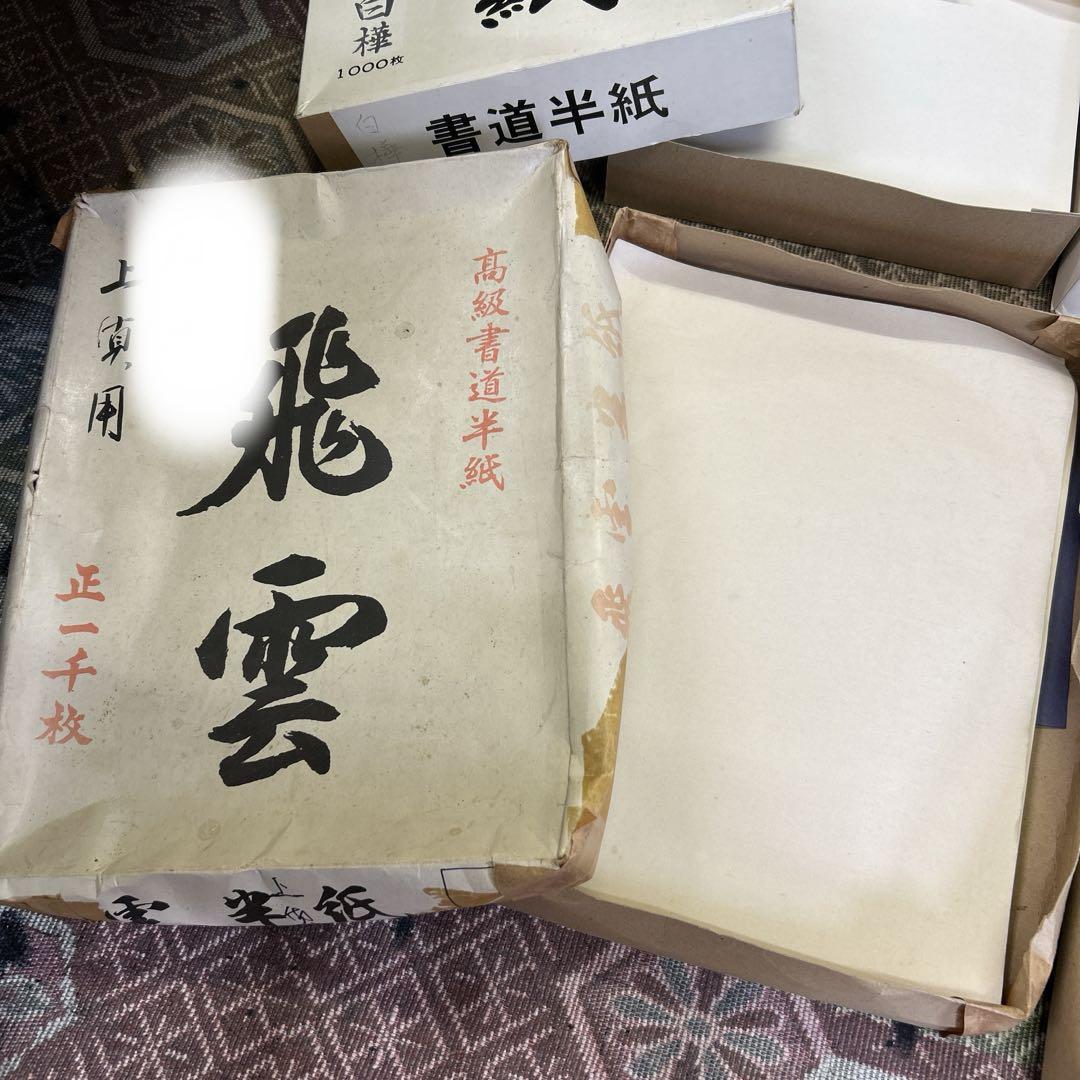 白樺
1000枚
紙
書道半紙
白樺
高級書道半紙
飛雲
上
用
正一千枚
飛雲半紙
雲半紙
上